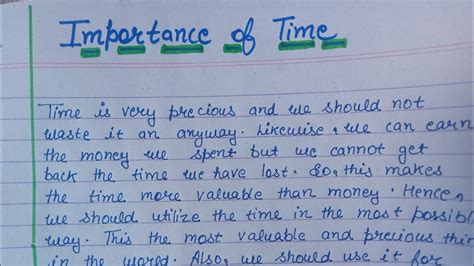 Importance of Time
Time is very precious and we should not
waste it an anyway. Likewise, we can earn
the money we spent but we cannot get
back the time we have lost. So, this makes
the time more valuable than money. Hence,
we should utilize the time in the most possible
way. This the most valuable and precious thin
in the world. Also, we should use it for